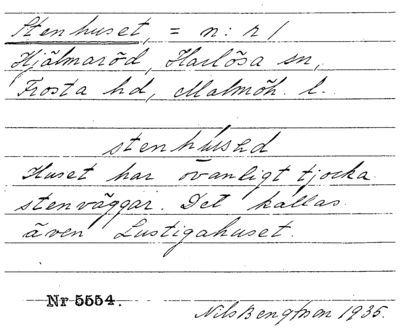 Stenhuset, = n: r 1
Hjälmaröd, Harlösa sn,
Frosta hd, Malmöh. l.
Huset har ovanligt tjocka
stenväggar. Det kallas
även Lustigahuset.
Nr 5554.
Nils Bengtson 1935.